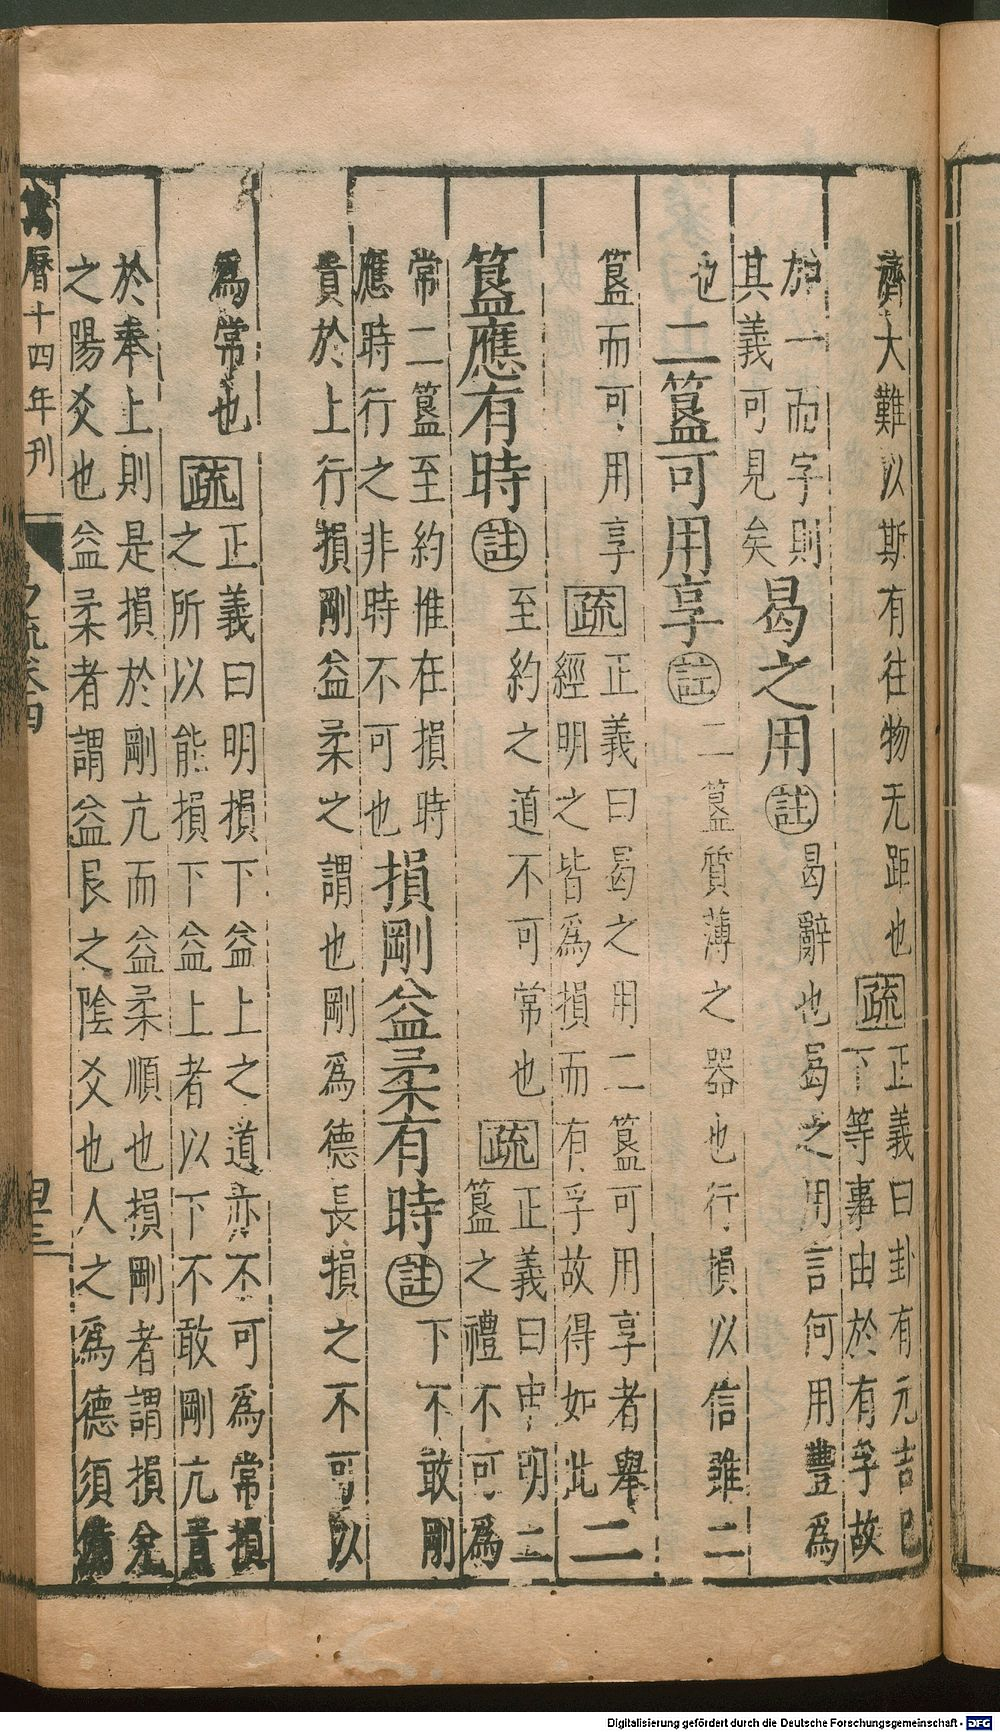 濟大難以斯有往物无距也疏正義曰卦有元吉已
下等事由於有孚故
於一而字則曷之用註曷辭也曷之用言何用豐爲
其義可見矣
也二簋可用享註二簋質薄之器也行損以信雖二
簋而可用享疏正義曰曷之用二簋可用享者舉二
經明之皆爲損而有孚故得如此
簋應有時註至約之道不可常也疏正義曰申明二
簋之禮不可爲
常二簋至約惟在損時
應時行之非時不可也損剛益柔有時註下不敢剛
貴於上行損剛益柔之謂也剛爲德長損之不可以
爲常也疏正義曰明損下益上之道亦不可爲常損
之所以能損下益上者以下不敢剛亢貴
於奉上則是損於剛亢而益柔順也損剛者謂損兌
之陽爻也益柔者謂益艮之陰爻也人之爲德須備
曆十四年刊